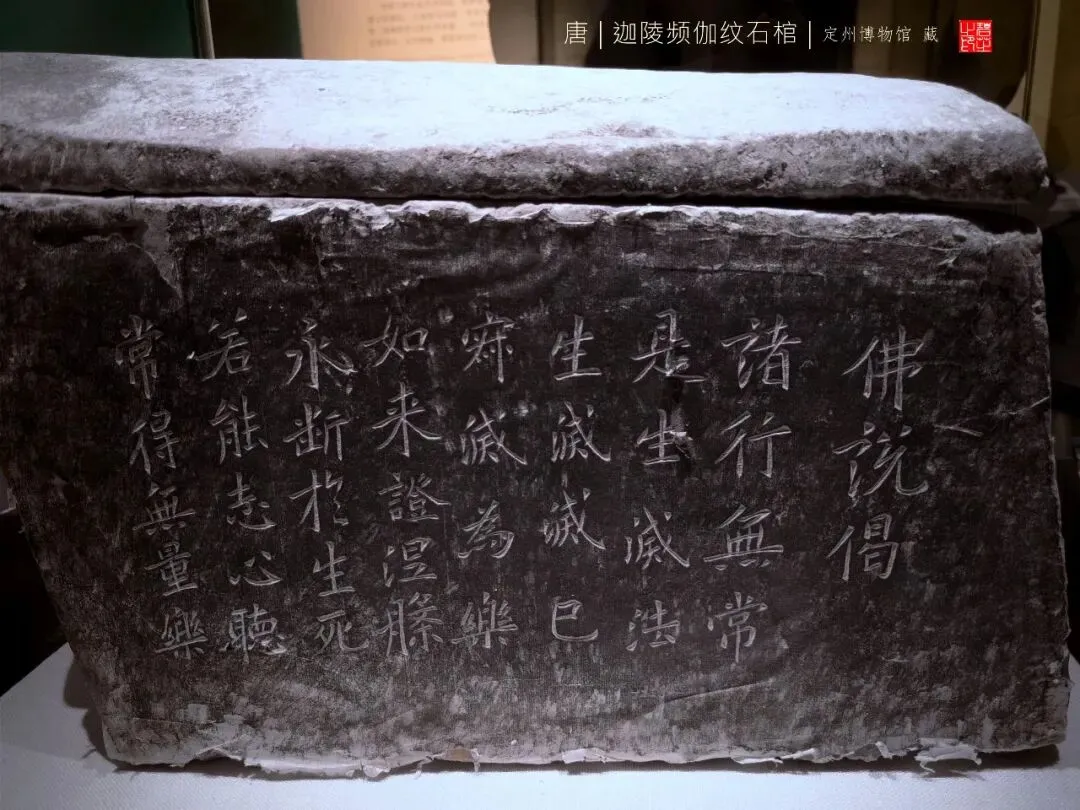 唐 | 迦陵频伽纹石棺 | 定州博物馆 藏
佛説偈
諸行無常
是生滅法
生滅滅已
寂滅為樂
如来證涅槃
永断於生死
若能志心聽
常得無量樂